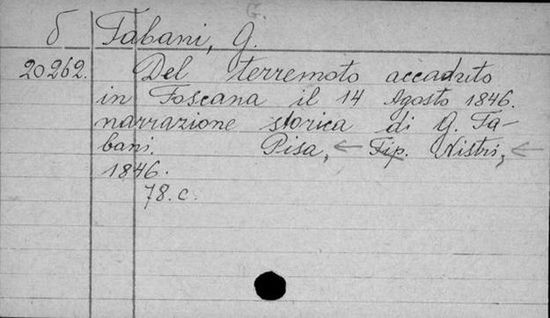 G.
б Tabani, G.
20262. Del terremoto accaduto
in Toscana il 14 Agosto 1846.
narrazione storica di G. Ta-
bani. Pisa, ← Tip. Nistri, ←
1846.
78. c.